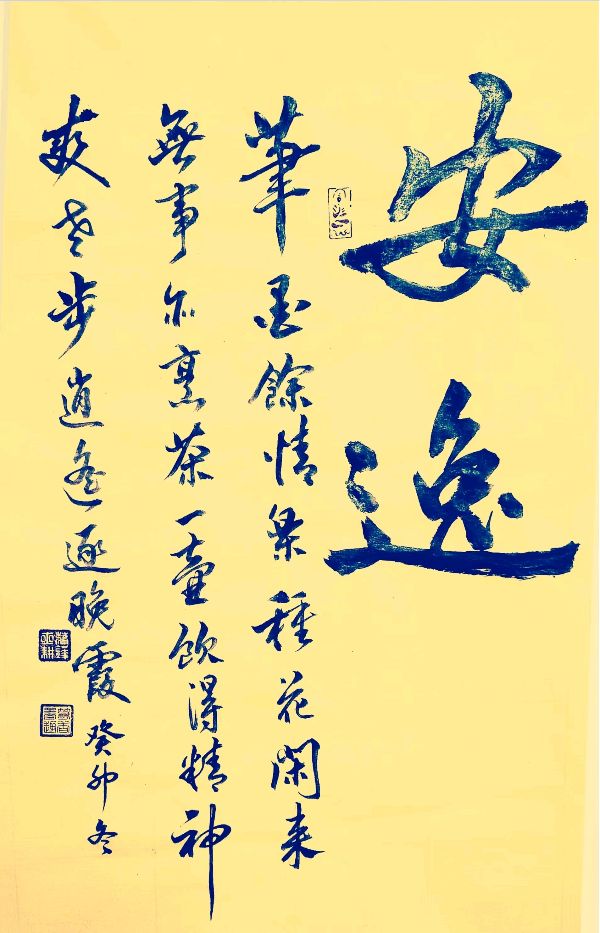 安逸
筆墨餘情樂種花閑来
無事亦烹茶一壺飲得精神
爽老步逍遙逐晚霞癸卯冬